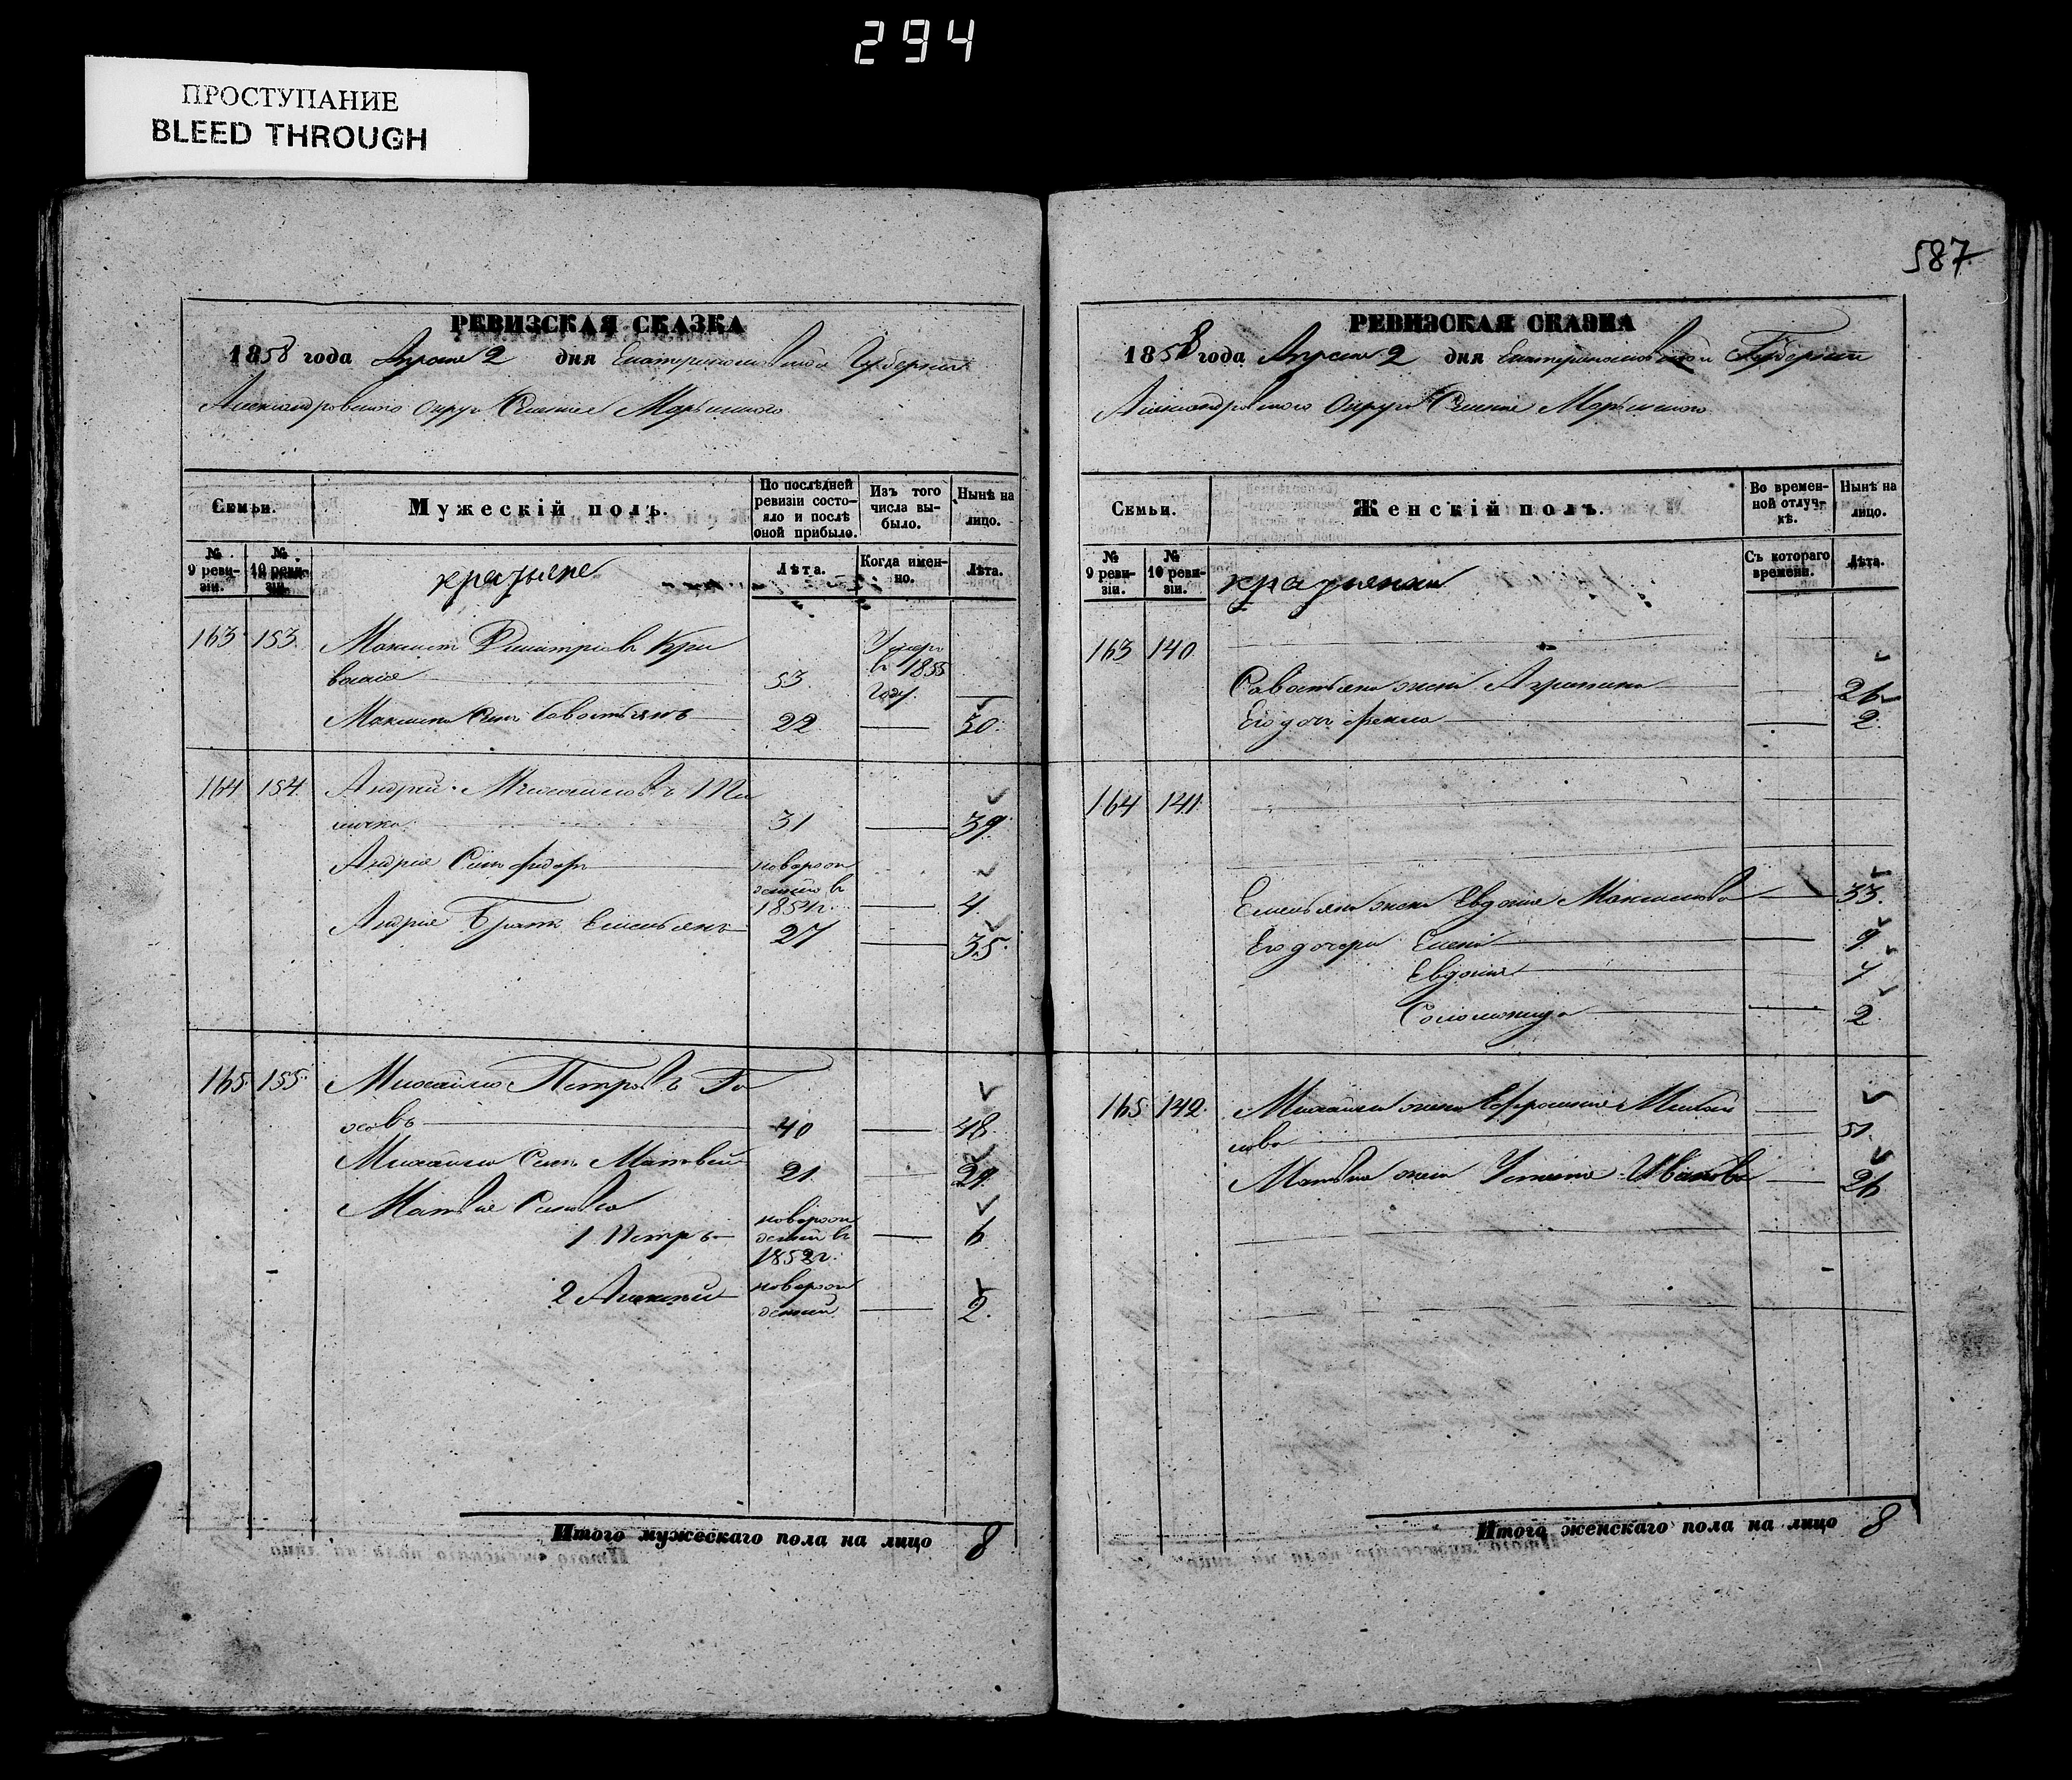 294
ПРОСТУПАНИЕ
BLEED THROUGH
587
РЕВИЗСКАЯ СКАЗКА
1858 года Апреля 2 дня Екатеринославской Губернии
Александровского Округа Селения Марьинского
Семьи.
Мужескій полъ.
По послѣдней ревизіи состояло и послѣ оной прибыло.
Изъ того числа выбыло.
Нынѣ на лицо.
№ 9 ревизіи.
№ 10 ревизіи.
Лѣта.
Когда именно.
Лѣта.
163 153 Максим Димитриев Кри
53 Умер в 1855 году
Максима Сын Савостьянъ 22 30
164 154 Андрей Михайловъ
31 39
Андрея Сын Федор новорож
денный в
1854 г. 4
Андрея Братъ Емельянъ 27 35
165 155 Михайло Петровъ Го
40 48
Михайлы Сынъ Матвей 21 29
Матвея Сыновья
1 Петръ новорож
денный в 6
1852 г.
2 Алексей новорож
денный 2
Итого мужескаго пола на лицо 8
РЕВИЗСКАЯ СКАЗКА
1858 года Апреля 2 дня Екатеринославской Губернии
Александровского Округа Селения Марьинского
Семьи.
Женскій полъ.
Во временной отлучкѣ.
Нынѣ на лицо.
№ 9 ревизіи.
№ 10 ревизіи.
Съ котораго времени.
Лѣта.
163 140
Савостьяна жена Агрипина 26
Его дочь Фекла 2
164 141
Емельяна жена Евдокия Максимова 33
Его дочери Елена 9
Евдокия
Соломонида 2
165 142 Михайлы жена Ефросиния Михай
лова 51
Матвея жена Устинья Иванова 26
Итого женскаго пола на лицо 8